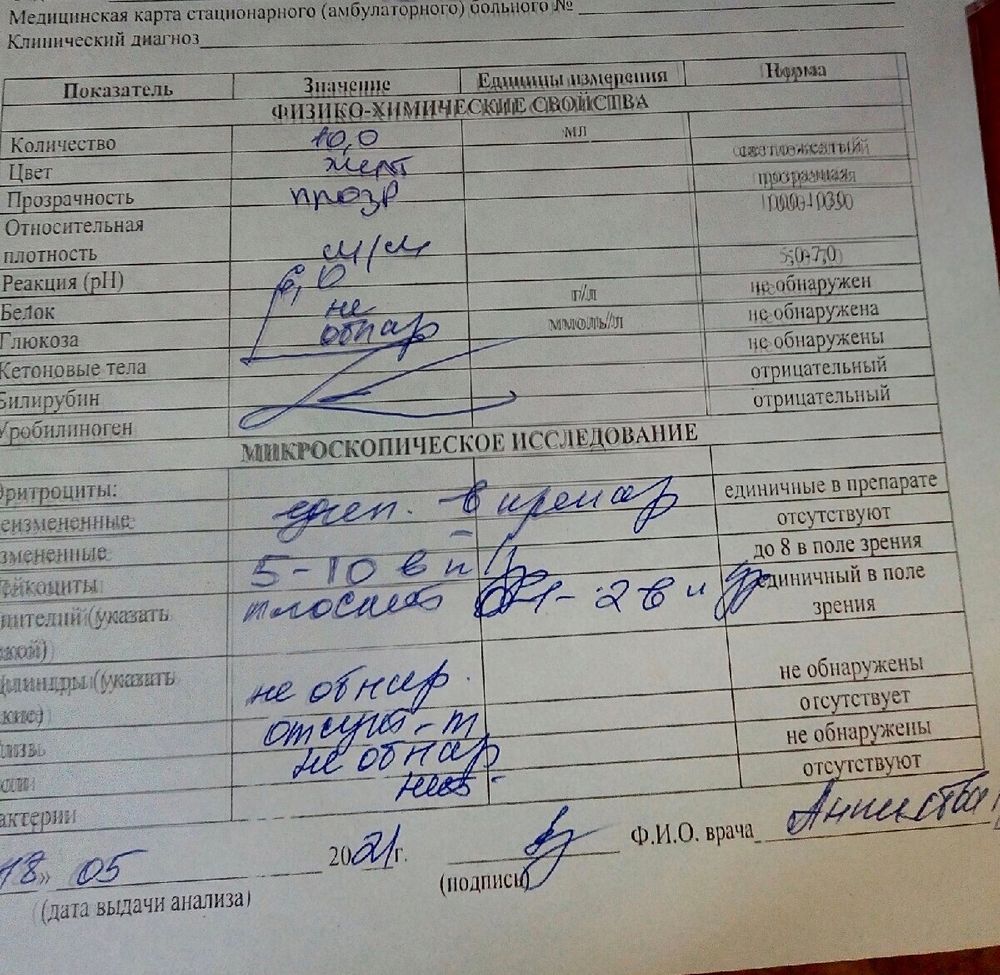 Медицинская карта стационарного (амбулаторного) больного №
Клинический диагноз
Показатель Значение Единицы измерения Норма
ФИЗИКО-ХИМИЧЕСКИЕ СВОЙСТВА
Количество 10,0 мл
Цвет желт светложелтый
Прозрачность прозр прозрачная
Относительная
плотность м/м
Реакция (pH) 6,0 5,0-7,0
Белок не г/л не обнаружен
Глюкоза обнар ммоль/л не обнаружена
Кетоновые тела не обнаружены
Билирубин отрицательный
Уробилиноген отрицательный
МИКРОСКОПИЧЕСКОЕ ИССЛЕДОВАНИЕ
ритроциты:
еизмененные един. в препар единичные в препарате
змененные - отсутствуют
ейкоциты 5-10 в п/ до 8 в поле зрения
пителий (указать плоский 1-2 в п единичный в поле
кой) зрения
илиндры (указать
кие) не обнар. не обнаружены
лизь отсутв-т отсутствует
оли не обнар не обнаружены
актерии нет- отсутствуют
18» 05 2021г. Ф.И.О. врача
(дата выдачи анализа) (подпись)